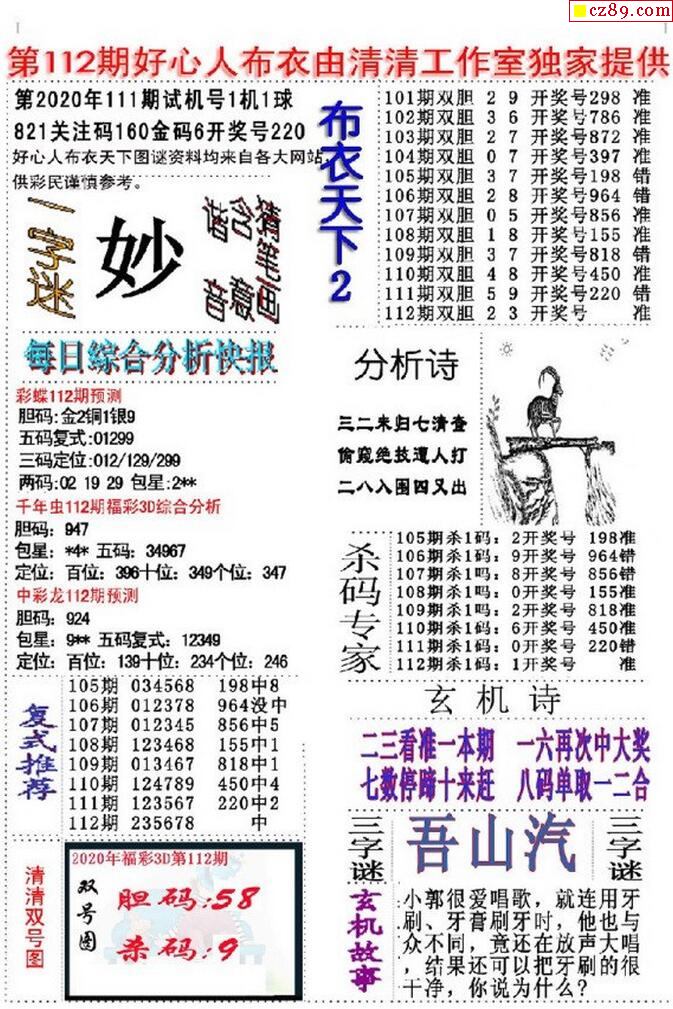 cz89.com
第112期好心人布衣由清清工作室独家提供
第2020年111期试机号1机1球
821关注码160金码6开奖号220
好心人布衣天下图谜资料均来自各大网站
供彩民谨慎参考。
一字迷
妙
猜笔画
含意
谐音
每日综合分析快报
彩蝶112期预测
胆码:金2铜1银9
五码复式:01299
三码定位:012/129/299
两码:02 19 29 包星:2**
千年虫112期福彩3D综合分析
胆码: 947
包星: *4* 五码: 34967
定位: 百位: 396十位: 349个位: 347
中彩龙112期预测
胆码: 924
包星: 9** 五码复式: 12349
定位: 百位: 139十位: 234个位: 246
复式推荐
105期 034568 198中8
106期 012378 964没中
107期 012345 856中5
108期 123468 155中1
109期 013467 818中1
110期 124789 450中4
111期 123567 220中2
112期 235678 中
清清双号图
2020年福彩3D第112期
双号图
胆码:58
杀码:9
布衣天下2
101期双胆 2 9 开奖号298 准
102期双胆 3 6 开奖号786 准
103期双胆 2 7 开奖号872 准
104期双胆 0 7 开奖号397 准
105期双胆 3 7 开奖号198 错
106期双胆 2 8 开奖号964 错
107期双胆 0 5 开奖号856 准
108期双胆 1 8 开奖号155 准
109期双胆 3 7 开奖号818 错
110期双胆 4 8 开奖号450 准
111期双胆 5 9 开奖号220 错
112期双胆 2 3 开奖号 准
分析诗
三二未归七清查
偷窥绝技遭人打
二八入围四又出
杀码专家
105期杀1码: 2开奖号 198准
106期杀1码: 9开奖号 964错
107期杀1吗: 8开奖号 856错
108期杀1吗: 0开奖号 155准
109期杀1吗: 2开奖号 818准
110期杀1码: 6开奖号 450准
111期杀1码: 0开奖号 220错
112期杀1码: 1开奖号 准
玄机诗
二三看准一本期 一六再次中大奖
七数停蹄十来赶 八码单取一二合
三字谜
吾山汽
三字谜
玄机故事
小郭很爱唱歌，就连用牙
刷、牙膏刷牙时，他也与
众不同，竟还在放声大唱
，结果还可以把牙刷的很
干净，你说为什么?